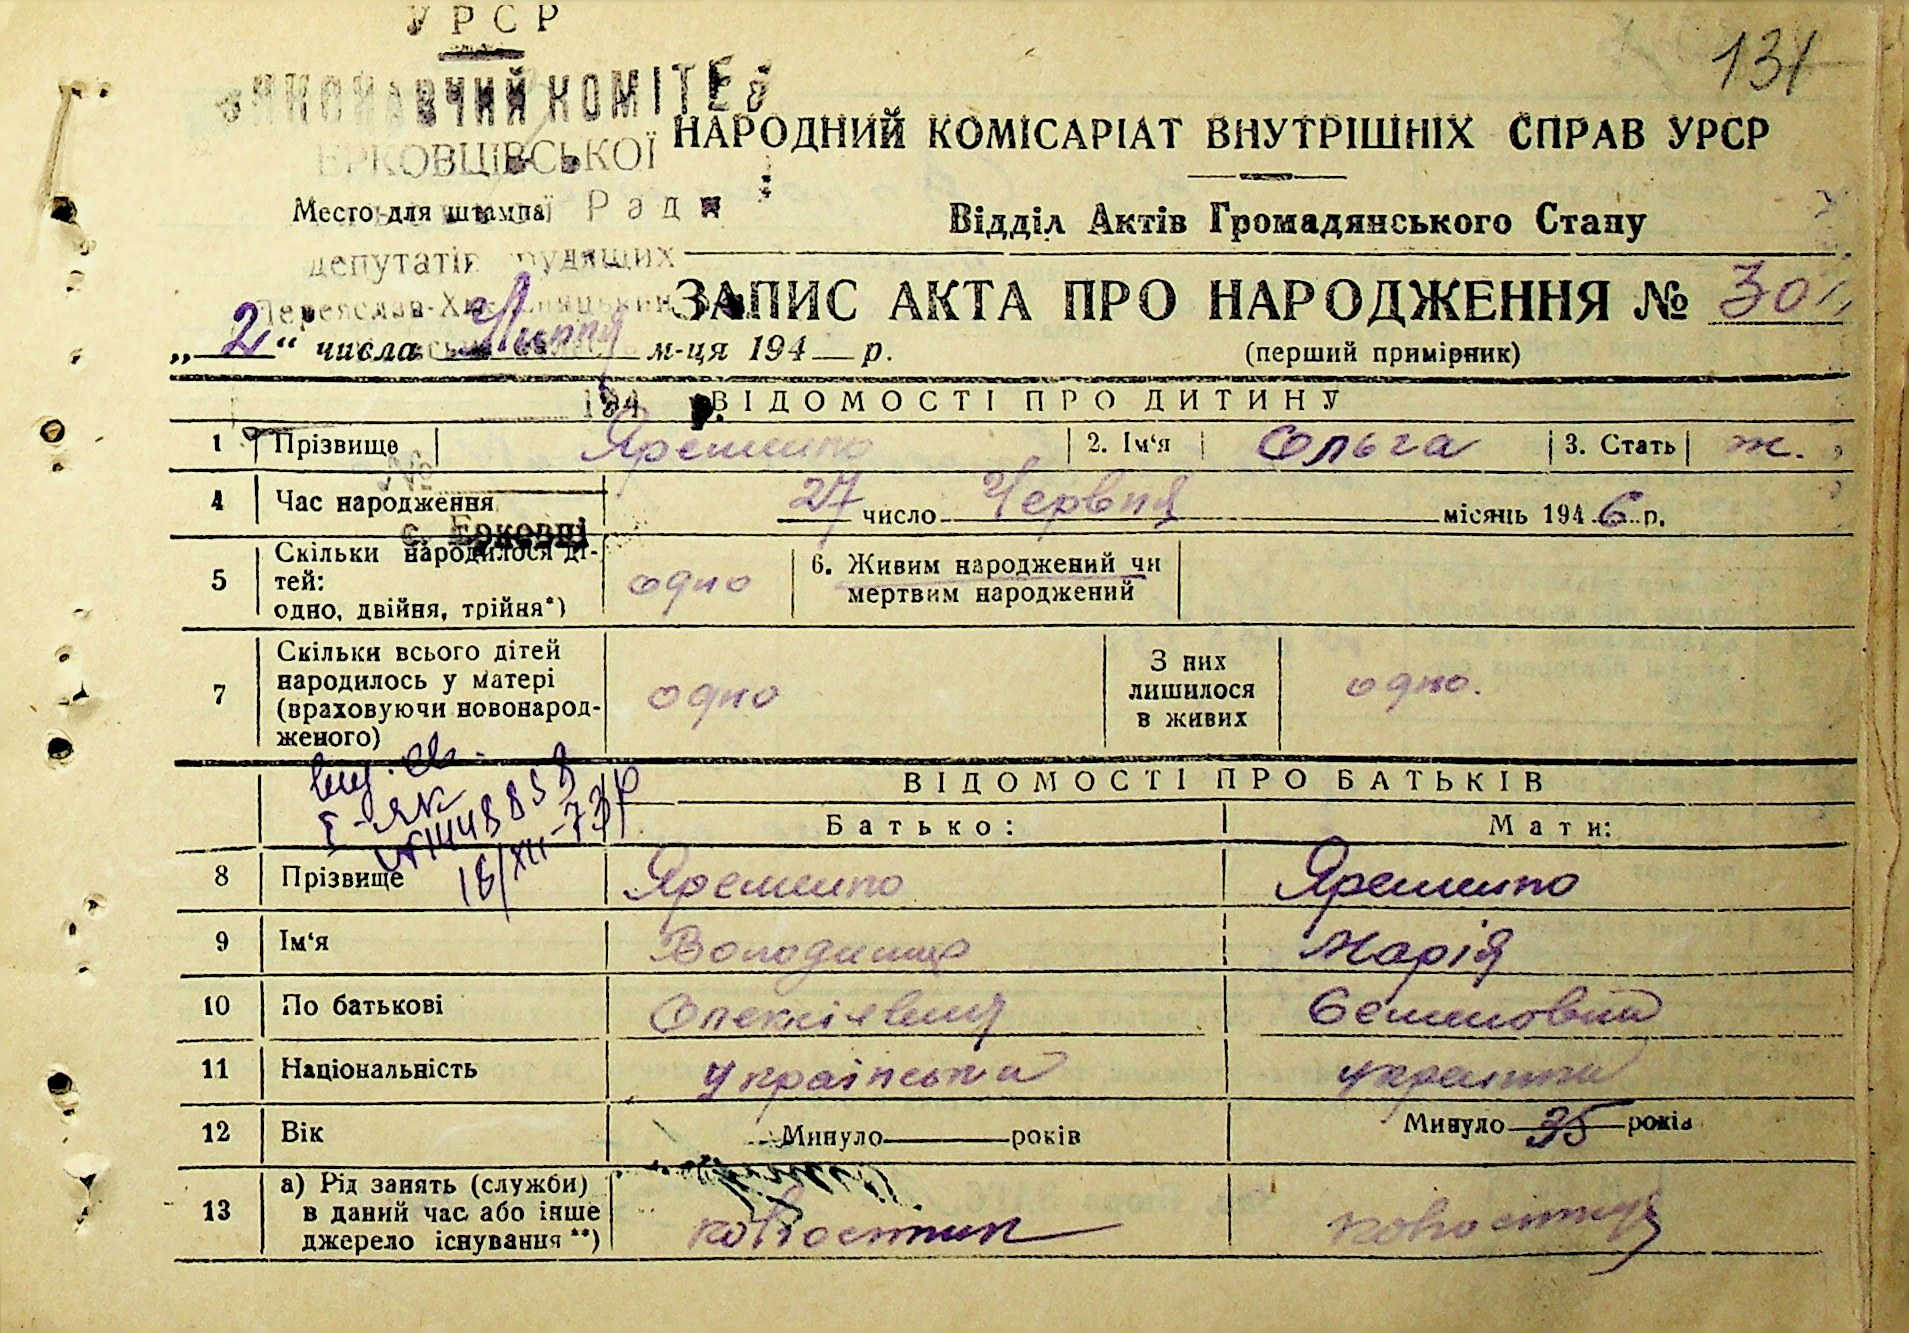 УРСР
131
ВИКОНАВЧИЙ КОМІТЕТ
НАРОДНИЙ КОМІСАРІАТ ВНУТРІШНІХ СПРАВ УРСР
ЕРКОВЦІВСЬКОЇ
Место для штампа
Ради
Відділ Актів Громадянського Стану
депутатів трудящих
Переяслав-Хмельницький
ЗАПИС АКТА ПРО НАРОДЖЕННЯ № 30
„2“ числа Липня м-ця 194 р.
(перший примірник)
194 р.
ВІДОМОСТІ ПРО ДИТИНУ
1 Прізвище Яременко 2. Ім‘я Ольга 3. Стать ж.
№
4 Час народження 27 число Червня місяць 1946 р.
с. Ерковці
5 Скільки народилося ді-
тей:
одно, двійня, трійня*) одно
6. Живим народжений чи
мертвим народжений
7 Скільки всього дітей
народилось у матері
(враховуючи новонарод-
женого) одно
З них
лишилося
в живих одно.
вид. св.
I-ЯК
№1448859
18/XII-73р
ВІДОМОСТІ ПРО БАТЬКІВ
Батько: Мати:
8 Прізвище Яременко Яременко
9 Ім‘я Володимир Марія
10 По батькові Олексієвич Семеновна
11 Національність українська українка
12 Вік Минуло років Минуло 35 років
13 а) Рід занять (служби)
в даний час або інше
джерело існування **) колгоспник колгоспниця